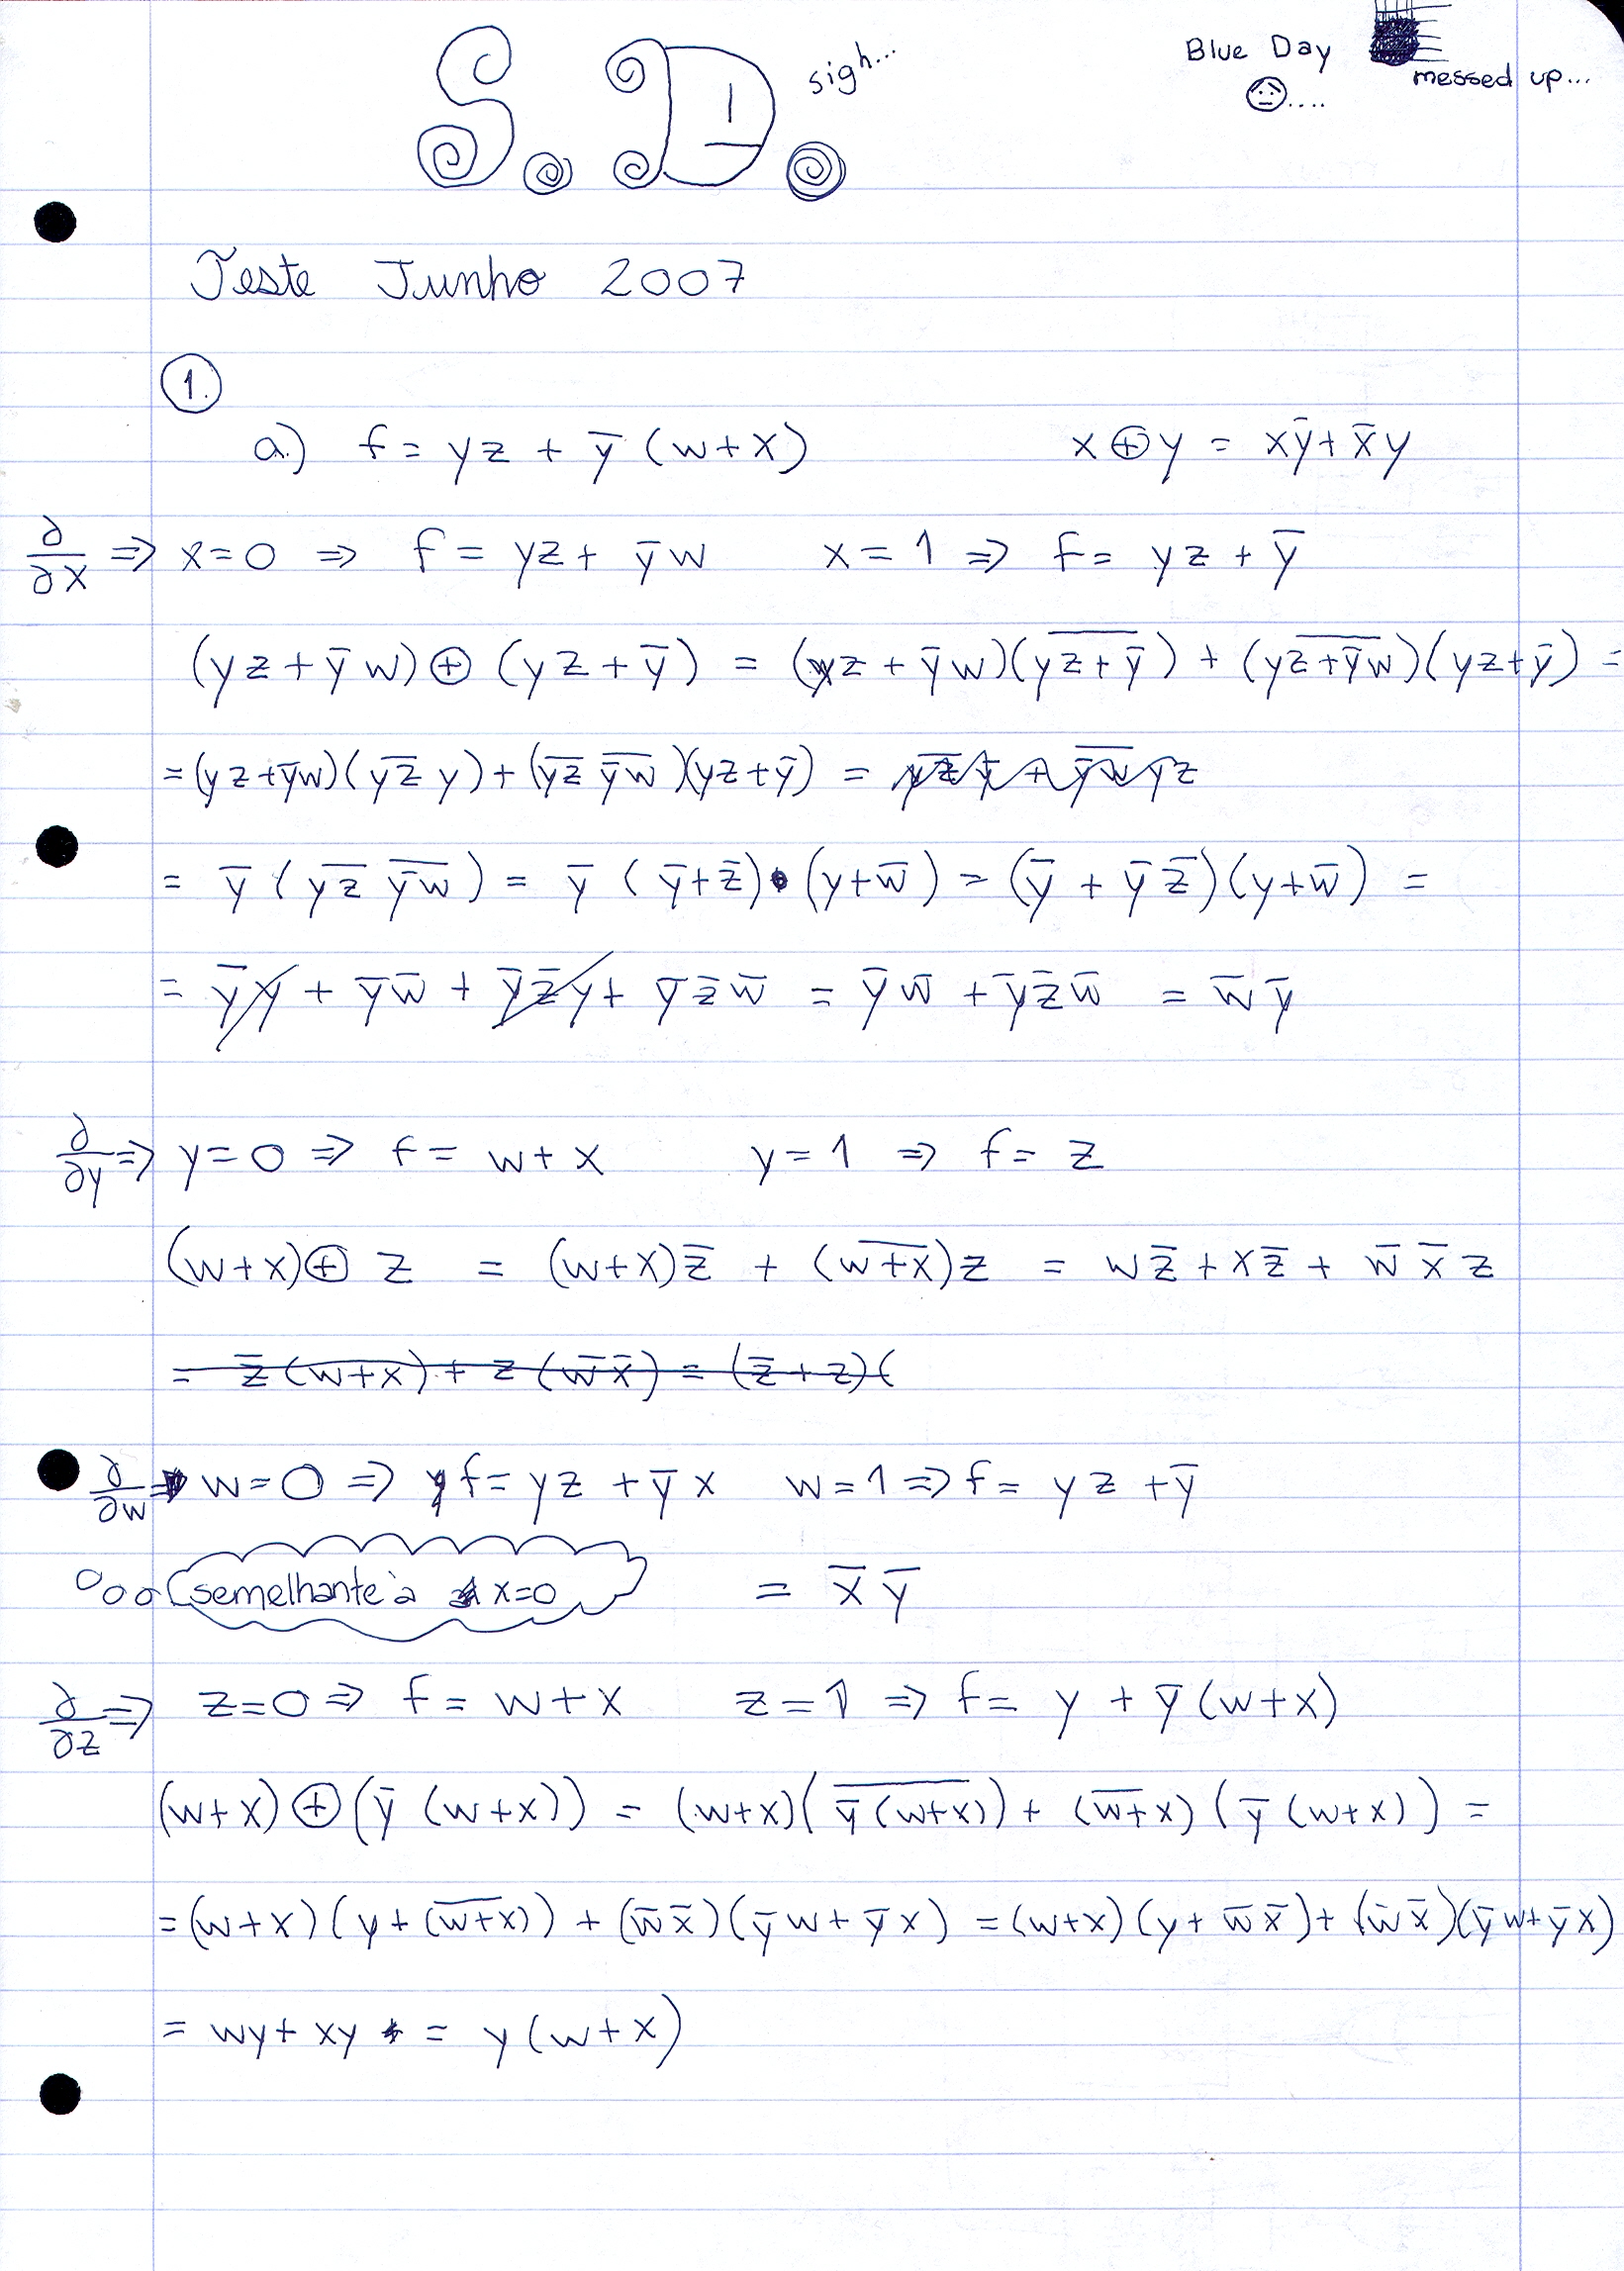 S. D. sigh... Blue Day messed up...
Teste Junho 2007
1.
a) f = yz + y̅ (w+x) x ⊕ y = xy̅ + x̅y
∂/∂x ⇒ x=0 ⇒ f = yz + y̅w x = 1 ⇒ f = yz + y̅
(yz + y̅w) ⊕ (yz + y̅) = (yz + y̅w)(\overline{yz + y̅}) + (\overline{yz + y̅w})(yz + y̅) =
= (yz + y̅w)(\overline{yz} y) + (\overline{yz} \overline{y̅w})(yz + y̅) =
= y̅ (\overline{yz} \overline{y̅w}) = y̅ (y̅ + z̅) • (y + w̅) = (y̅ + y̅ z̅)(y + w̅) =
= y̅y + y̅w̅ + y̅z̅y + y̅z̅w̅ = y̅w̅ + y̅z̅w̅ = w̅ y̅
∂/∂y ⇒ y=0 ⇒ f = w + x y = 1 ⇒ f = z
(w+x) ⊕ z = (w+x)z̅ + (\overline{w+x})z = wz̅ + xz̅ + w̅ x̅ z
= z̅ (w+x) + z (w̅x̅) = (z̅ + z)(
∂/∂w ⇒ w=0 ⇒ f = yz + y̅x w = 1 ⇒ f = yz + y̅
semelhante à x=0 = x̅ y̅
∂/∂z ⇒ z=0 ⇒ f = w + x z = 1 ⇒ f = y + y̅ (w+x)
(w+x) ⊕ (y̅ (w+x)) = (w+x)(\overline{y̅ (w+x)}) + (\overline{w+x}) (y̅ (w+x)) =
= (w+x)(y + (\overline{w+x})) + (w̅x̅)(y̅w + y̅x) = (w+x)(y + w̅x̅) + (w̅x̅)(y̅w + y̅x)
= wy + xy = y (w+x)